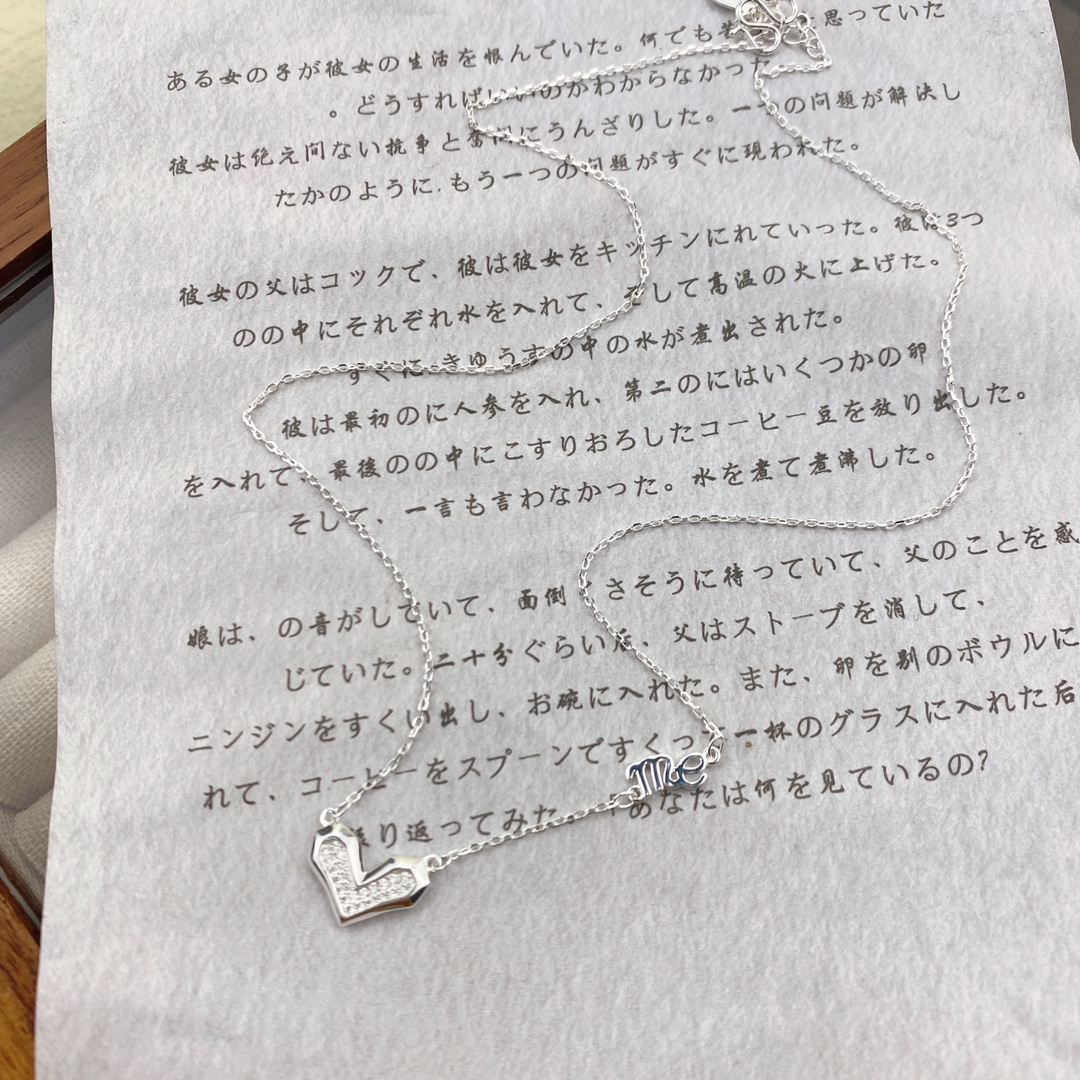 ある女の子が彼女の生活を恨んでいた。何でも思っていた
。どうすればいいのかわからなかった
彼女は绝え间ない抗争と奮闘にうんざりした。一つの问题が解决し
たかのように,もう一つの问题がすぐに现われた。
彼女の父はコックで、彼は彼女をキッチンにれていった。彼は3つ
のの中にそれぞれ水を入れて、そして高温の火に上げた。
すぐに きゅうすの中の水が煮出された。
彼は最初のに人参を入れ、第二のにはいくつかの卵
を入れて、最後のの中にこすりおろしたコーヒー豆を放り出した。
そして、一言も言わなかった。水を煮て煮沸した。
娘は、の音がしていて、面倒くさそうに待っていて、父のことを感
じていた。二十分ぐらい后、父はストーブを消して、
ニンジンをすくい出し、お碗に入れた。また、卵を别のボウルに
れて、コーヒーをスプーンですくって一杯のグラスに入れた后
振り返ってみた。「あなたは何を見ているの?
me